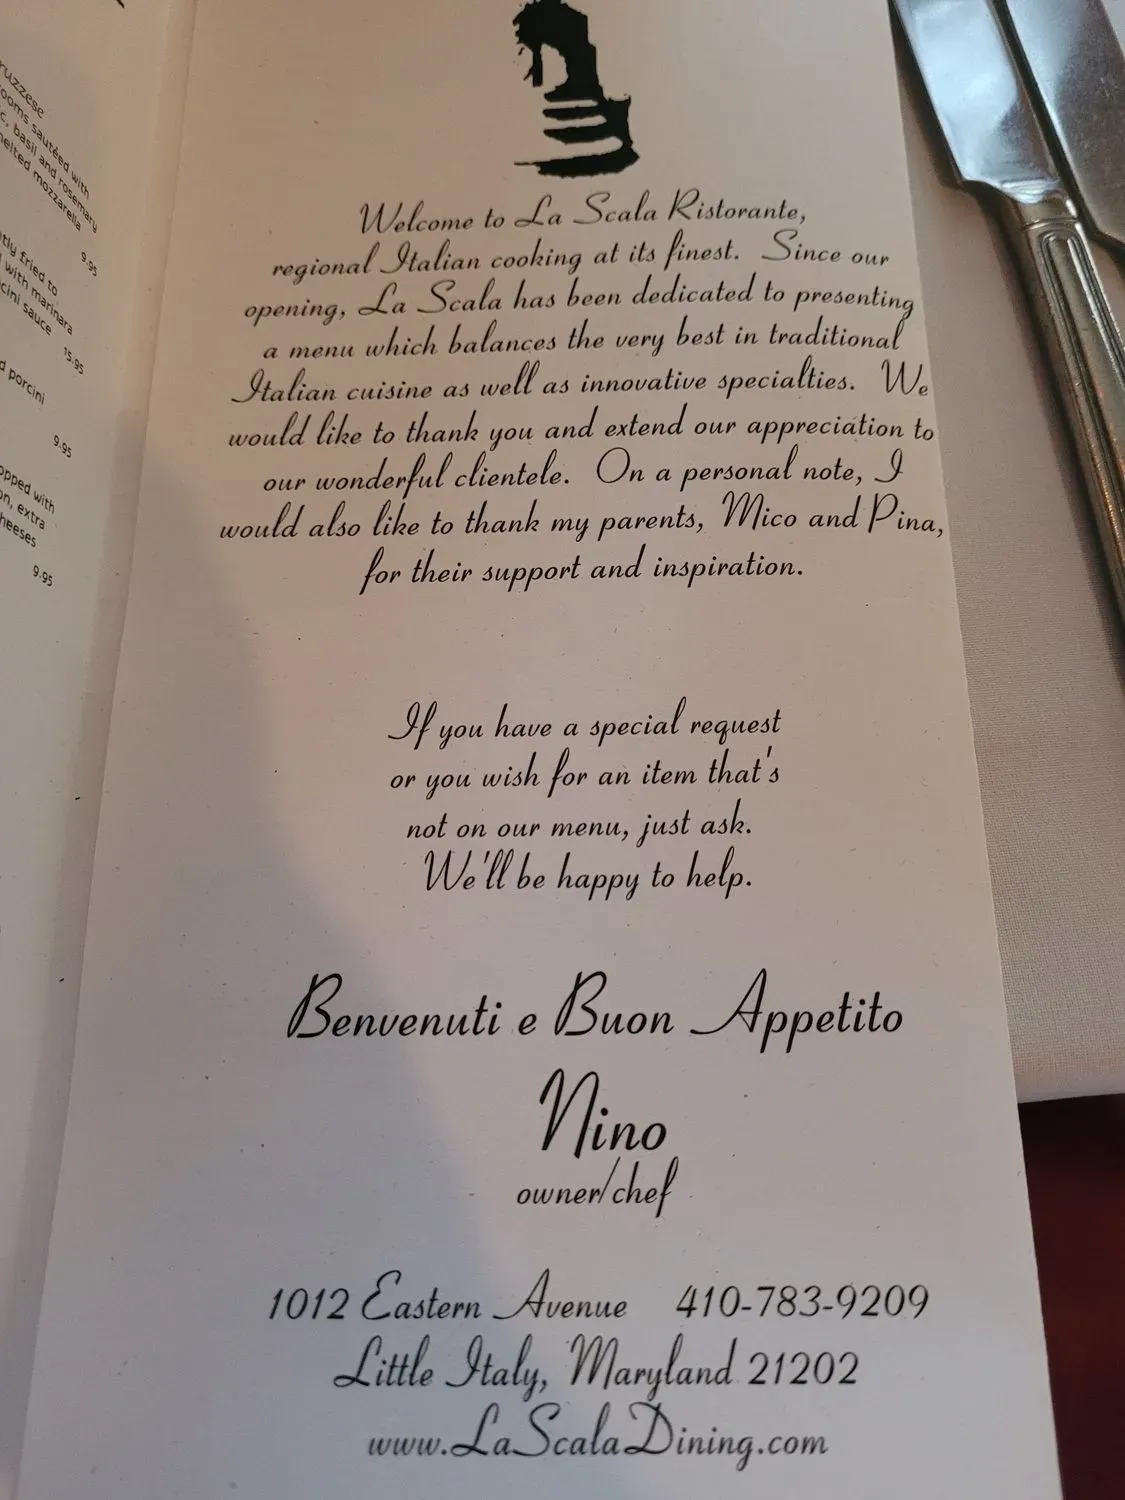 ruzzese
ooms sautéed with
c, basil and rosemary
melted mozzarella
9.95
tly fried to
with marinara
cini sauce
15.95
porcini
9.95
opped with
on, extra
heeses
9.95
Welcome to La Scala Ristorante,
regional Italian cooking at its finest. Since our
opening, La Scala has been dedicated to presenting
a menu which balances the very best in traditional
Italian cuisine as well as innovative specialties. We
would like to thank you and extend our appreciation to
our wonderful clientele. On a personal note, I
would also like to thank my parents, Mico and Pina,
for their support and inspiration.
If you have a special request
or you wish for an item that's
not on our menu, just ask.
We'll be happy to help.
Benvenuti e Buon Appetito
Nino
owner/chef
1012 Eastern Avenue 410-783-9209
Little Italy, Maryland 21202
www.LaScalaDining.com